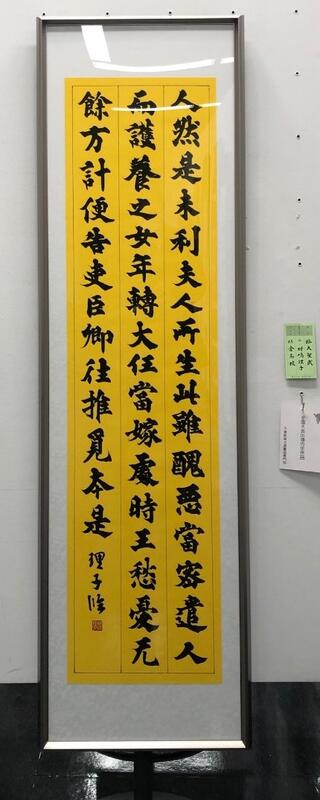 人然是末利夫人所生此雖醜惡當密遣人
而護養之女年轉大任當嫁處時王愁憂无
餘方計便告吏臣卿往推覓本是 理子臨
臨大聖武